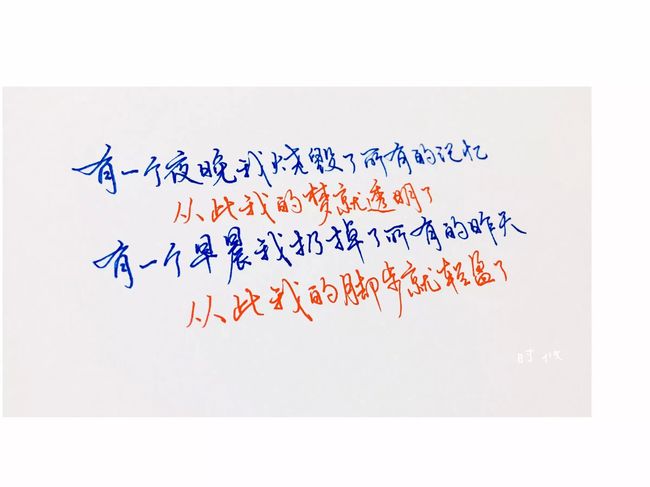 有一个夜晚我烧毁了所有的记忆
从此我的梦就透明了
有一个早晨我扔掉了所有的昨天
从此我的脚步就轻盈了